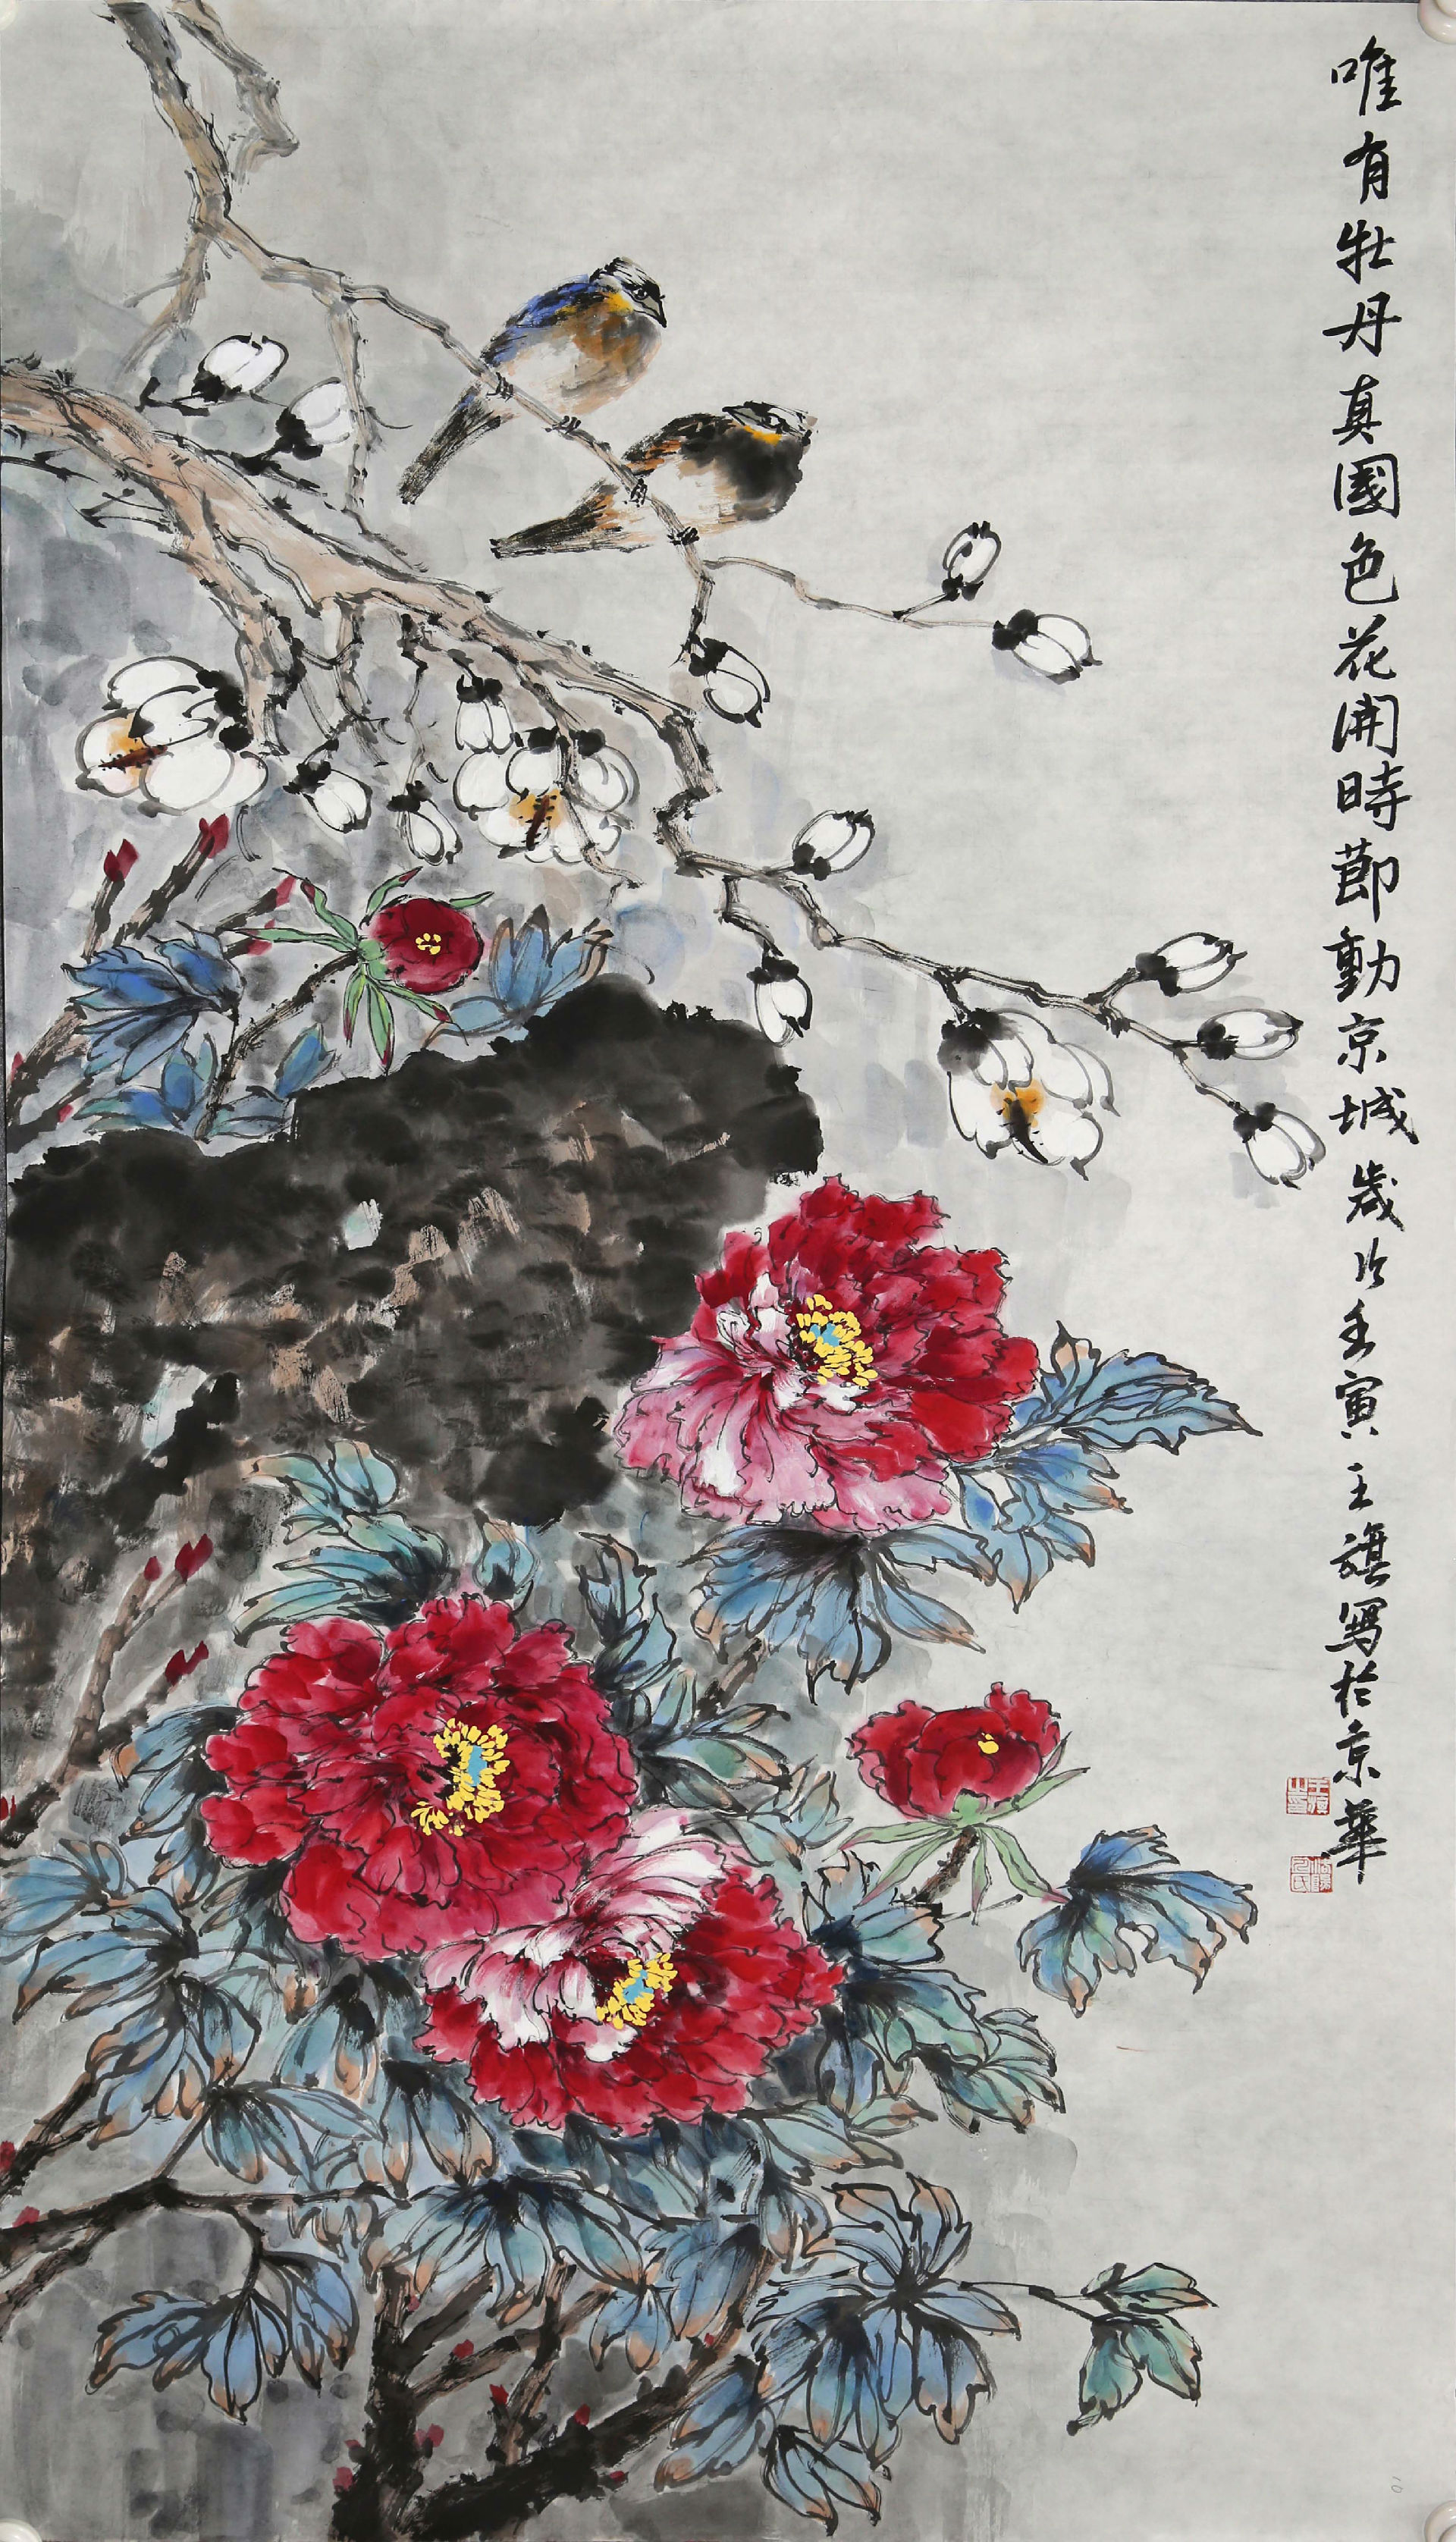 唯有牡丹真國色花開時節動京城歲次壬寅王旗写於京華